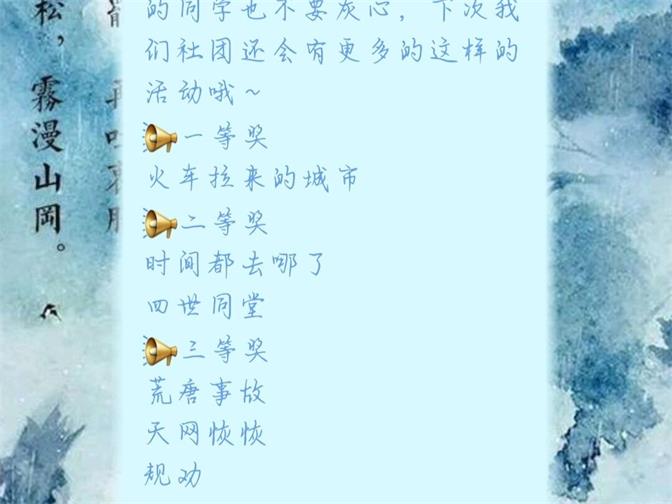 的同学也不要灰心，下次我
们社团还会有更多的这样的
活动哦～
一等奖
火车拉来的城市
二等奖
时间都去哪了
四世同堂
三等奖
荒唐事故
天网恢恢
规劝
松，雾漫山岡。